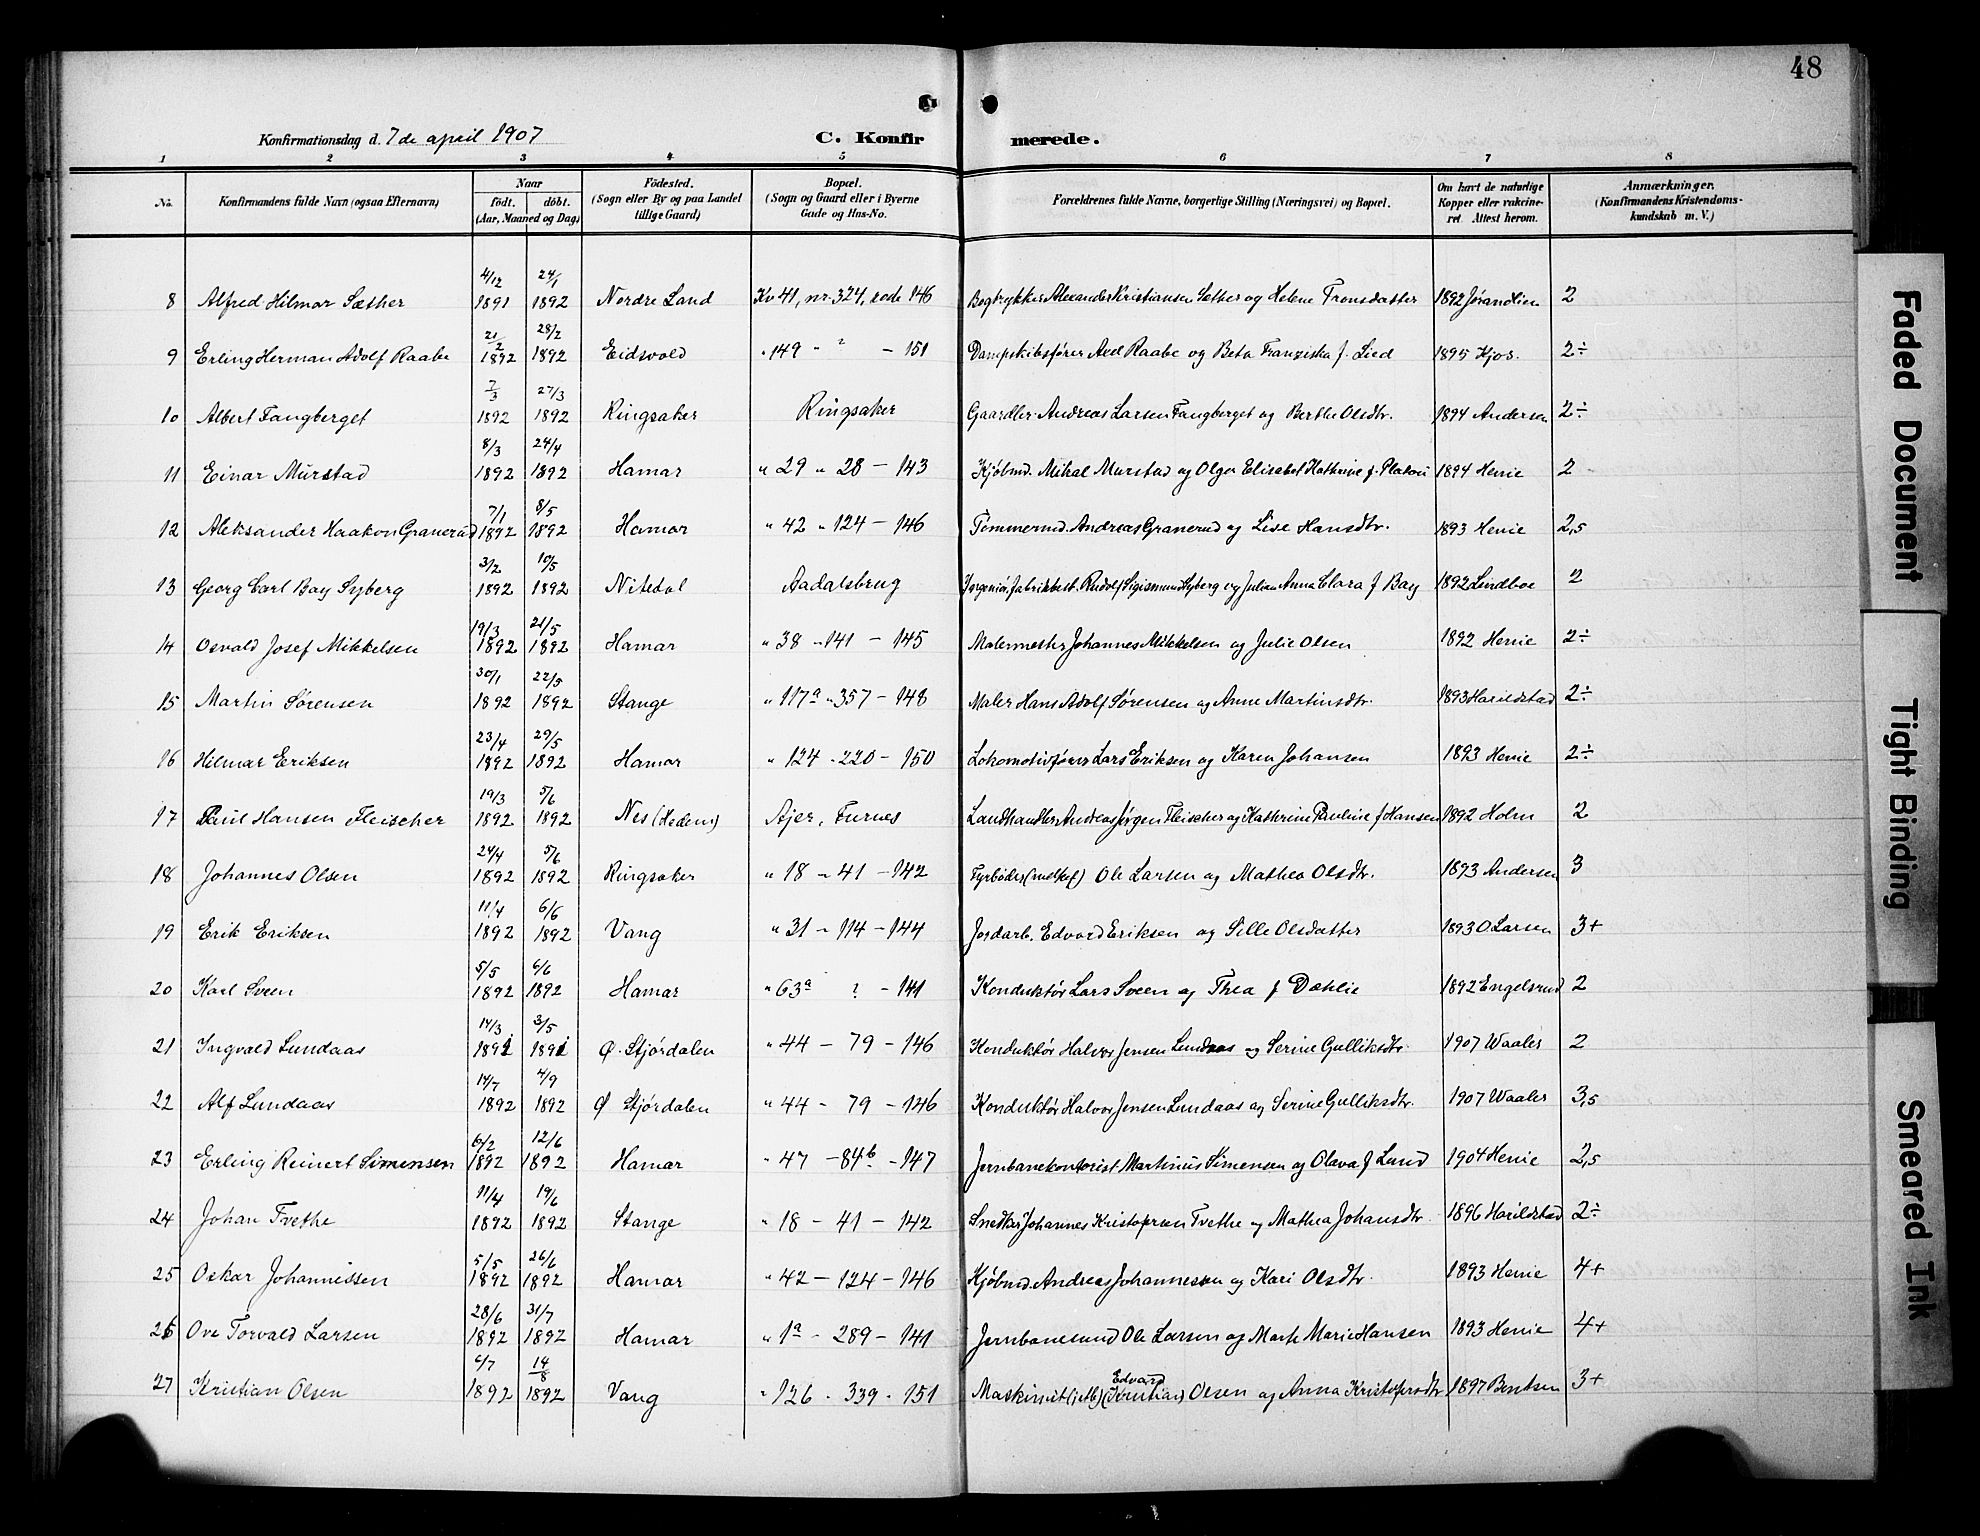 48
Konfirmationsdag d. 7de april 1907
C. Konfirmerede.
1 2 3 4 5 6 7 8
No. | Konfirmandens fulde Navn (ogsaa Efternavn) | Naar födt. döbt. (Aar, Maaned og Dag) | Födested. (Sogn eller By og paa Landet tillige Gaard) | Bopæl. (Sogn og Gaard eller i Byerne Gade og Hus-No. | Forældrenes fulde Navne, borgerlige Stilling (Næringsvei) og Bopæl. | Om havt de naturlige Kopper eller vakcineret. Attest herom. | Anmærkninger. (Konfirmandens Kristendomskundskab m. V.)
8 Alfred Hilmar Sæther 4/12 1891 24/1 1892 Nordre Land Kv 41, nr. 324, rode 146 Bogtrykker Alexander Kristiansen Sæther og Helene Tronsdatter 1892 Jørandlien 2
9 Erling Herman Adolf Raabe 21/2 1892 28/2 1892 Eidsvold " 149 " ? - 151 Dampskibsfører Axel Raabe og Beta Franziska f. Lied 1895 Kjos. 2÷
10 Albert Fangberget 7/3 1892 27/3 1892 Ringsaker Ringsaker Gaardbr. Andreas Larsen Fangberget og Berthe Olsdtr. 1894 Andersen 2÷
11 Einar Murstad 8/3 1892 24/4 1892 Hamar " 29 " 28 - 143 Kjøbmd. Mikal Murstad og Olga Elisabet Kathrine f. Platou 1894 Henie 2
12 Aleksander Haakon Granerud 7/1 1892 8/5 1892 Hamar " 42 " 124 - 146 Tømmermd. Andreas Granerud og Lise Hansdtr. 1893 Henie 2,5
13 Georg Carl Bay Syberg 3/2 1892 10/5 1892 Nitedal Aadalsbrug Ingeniør, fabrikbest. Rudolf Sigismund Syberg og Julian Anna Clara f Bay 1892 Lindboe 2
14 Osvald Josef Mikkelsen 19/3 1892 21/5 1892 Hamar " 38 " 141 - 145 Malermester Johannes Mikkelsen og Julie Olsen 1892 Henie 2÷
15 Martin Sørensen 30/1 1892 22/5 1892 Stange " 117a " 357 - 148 Maler Hans Adolf Sørensen og Anne Martinsdtr. 1893 Harildstad 2÷
16 Hilmar Eriksen 23/4 1892 29/5 1892 Hamar " 124 - 220 - 150 Lokomotivfører Lars Eriksen og Karen Johansen 1893 Henie 2÷
17 Paul Hansen Fleischer 19/3 1892 5/6 1892 Nes (Hedem) Ajer, Furnes Landhandler Andreas Jørgen Fleischer og Kathrine Pauline f Hansen 1892 Holm 2
18 Johannes Olsen 24/4 1892 5/6 1892 Ringsaker " 18 " 41 - 142 Fyrbøder Ole Larsen og Mathea Olsdtr. 1893 Andersen 3
19 Erik Eriksen 11/4 1892 6/6 1892 Vang " 31 - 114 - 144 Jordarb. Edvard Eriksen og Sille Olsdatter 1893 O Larsen 3+
20 Karl Sveen 5/5 1892 6/6 1892 Hamar " 63a ? - 141 Konduktør Lars Sveen og Thea f Dæhlie 1892 Engelsrud 2
21 Ingvald Lundaas 14/3 1891 3/5 1891 Ø. Stjørdalen " 44 - 79 - 146 Konduktør Halvor Jensen Lundaas og Serine Gulliksdtr. 1907 Waaler 2
22 Alf Lundaas 14/7 1892 4/9 1892 Ø Stjørdalen " 44 - 79 - 146 Konduktør Halvor Jensen Lundaas og Serine Gulliksdtr. 1907 Waaler 3,5
23 Erling Reinert Simensen 6/2 1892 12/6 1892 Hamar " 47 - 84b - 147 Jernbanekontorist Martinus Simensen og Olava f Lund 1904 Henie 2,5
24 Johan Tvethe 11/4 1892 19/6 1892 Stange " 18 - 41 - 142 Snedker Johannes Kristofersen Tvethe og Mathea Johansdtr. 1896 Harildstad 2÷
25 Oskar Johannessen 5/5 1892 26/6 1892 Hamar " 42 - 124 - 146 Kjøbmd. Andreas Johannessen og Kari Olsdtr. 1893 Henie 4+
26 Ove Torvald Larsen 28/6 1892 31/7 1892 Hamar " 1a - 289 - 141 Jernbanesmed Ole Larsen og Marte Marie Hansen 1893 Henie 4+
27 Kristian Olsen 6/7 1892 14/8 1892 Vang " 126 - 339 - 151 Maskinist (Kristian) Edvard Olsen og Anna Kristofersdtr 1897 Bentsen 3+
Faded Document
Tight Binding
Smeared Ink